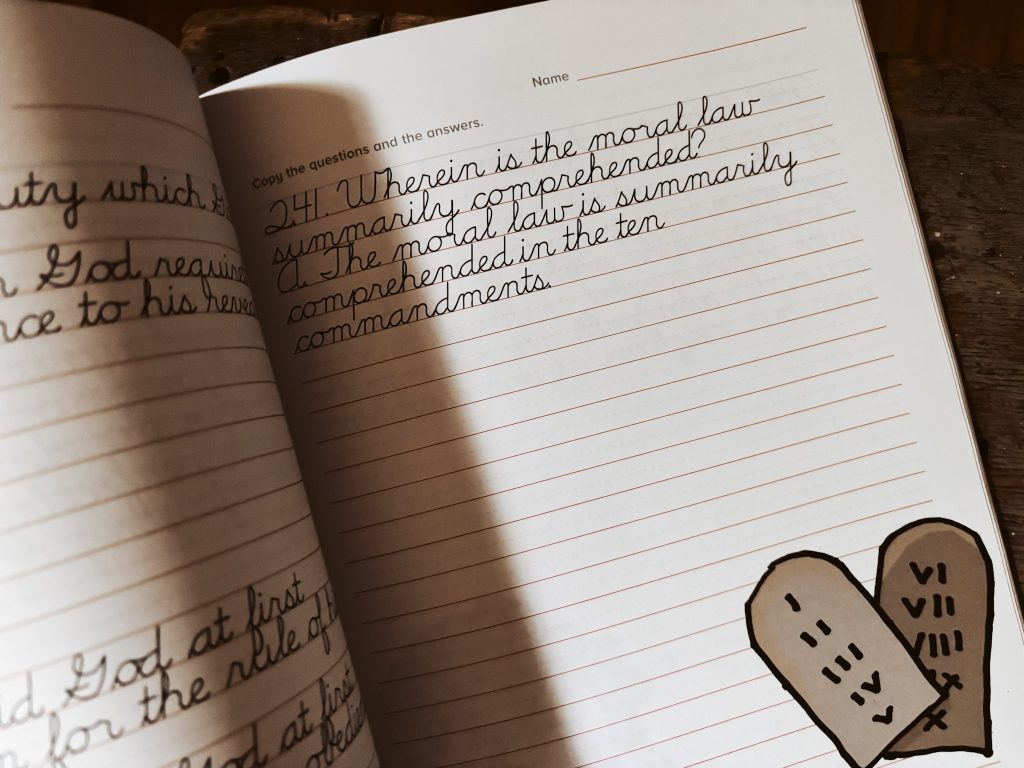 which
God
to his
God at first
for the rule of
God at first
Name
Copy the questions and the answers.
241. Wherein is the moral law
summarily comprehended?
A. The moral law is summarily
comprehended in the ten
commandments.
I
II
III
IV
V
VI
VII
VIII
IX
X